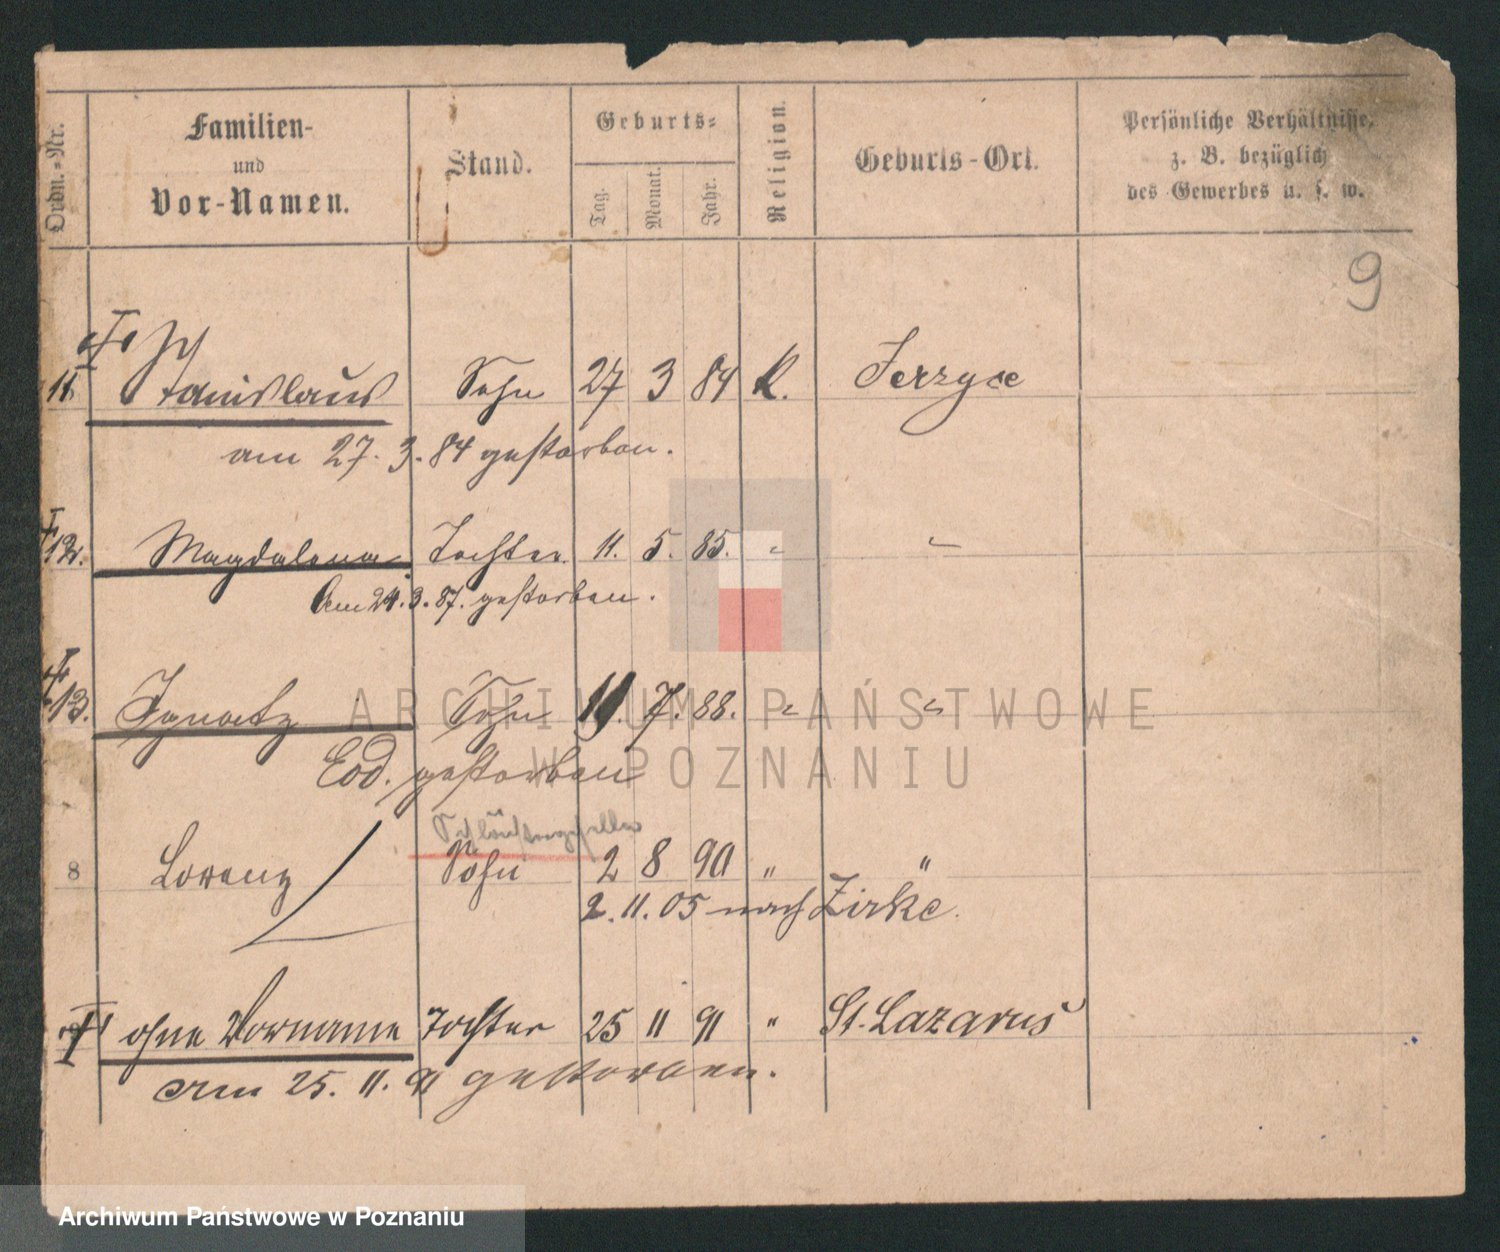 Ordn.-Nr. Familien- und Vor-Namen. Stand. Geburts- Tag. Monat. Jahr. Religion. Geburts-Ort. Persönliche Verhältnisse, z. B. bezüglich des Gewerbes u. s. w.
9
11 Stanislaus Sohn 27 3 84 K. Jerzyce
am 27. 3. 84 gestorben.
12. Magdalena Tochter 11. 5. 85. " "
Am 24. 3. 87. gestorben.
13. Ignatz Sohn 19. 7. 88. " "
Eod. gestorben
8 Lorenz Sohn 2 8 90 " "
2. 11. 05 nach Zirke.
ohne Vorname Tochter 25 11 91 " St. Lazarus
am 25. 11. 91 gestorben.
ARCHIWUM PAŃSTWOWE
W POZNANIU
Archiwum Państwowe w Poznaniu